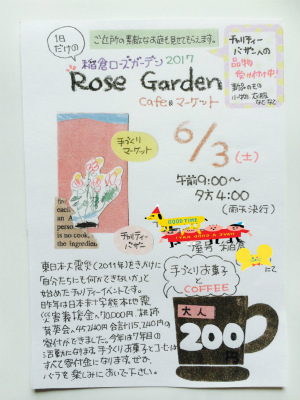 1日
だけの
ご近所の素敵なお庭も見せてもらえます。
稲倉ローズガーデン2017
Rose Garden
cafe & マーケット
チャリティー
バザーへの
品物
受け付け中!
手づくり
マーケット
6/3(土)
午前9:00〜
夕方4:00
(雨天決行)
fro
each
an A
perso
is no cook,
the ingredien
チャリティー
バザー
GOOD TIME
東日本大震災(2011年)をきっかけに
「自分たちにも何かできないか」と
始めたチャリティーイベントです。
昨年は日本赤十字熊本地震
災害義援金へ70,000円、
育英会へ45,240円 合計115,240円の
寄付ができました。今年は7年目の
活動になります。手づくりお菓子とコーヒーは
すべて寄付金になります。ぜひ、
バラを楽しみにおいで下さい。
手づくりお菓子
と
COFFEE
大人
200円